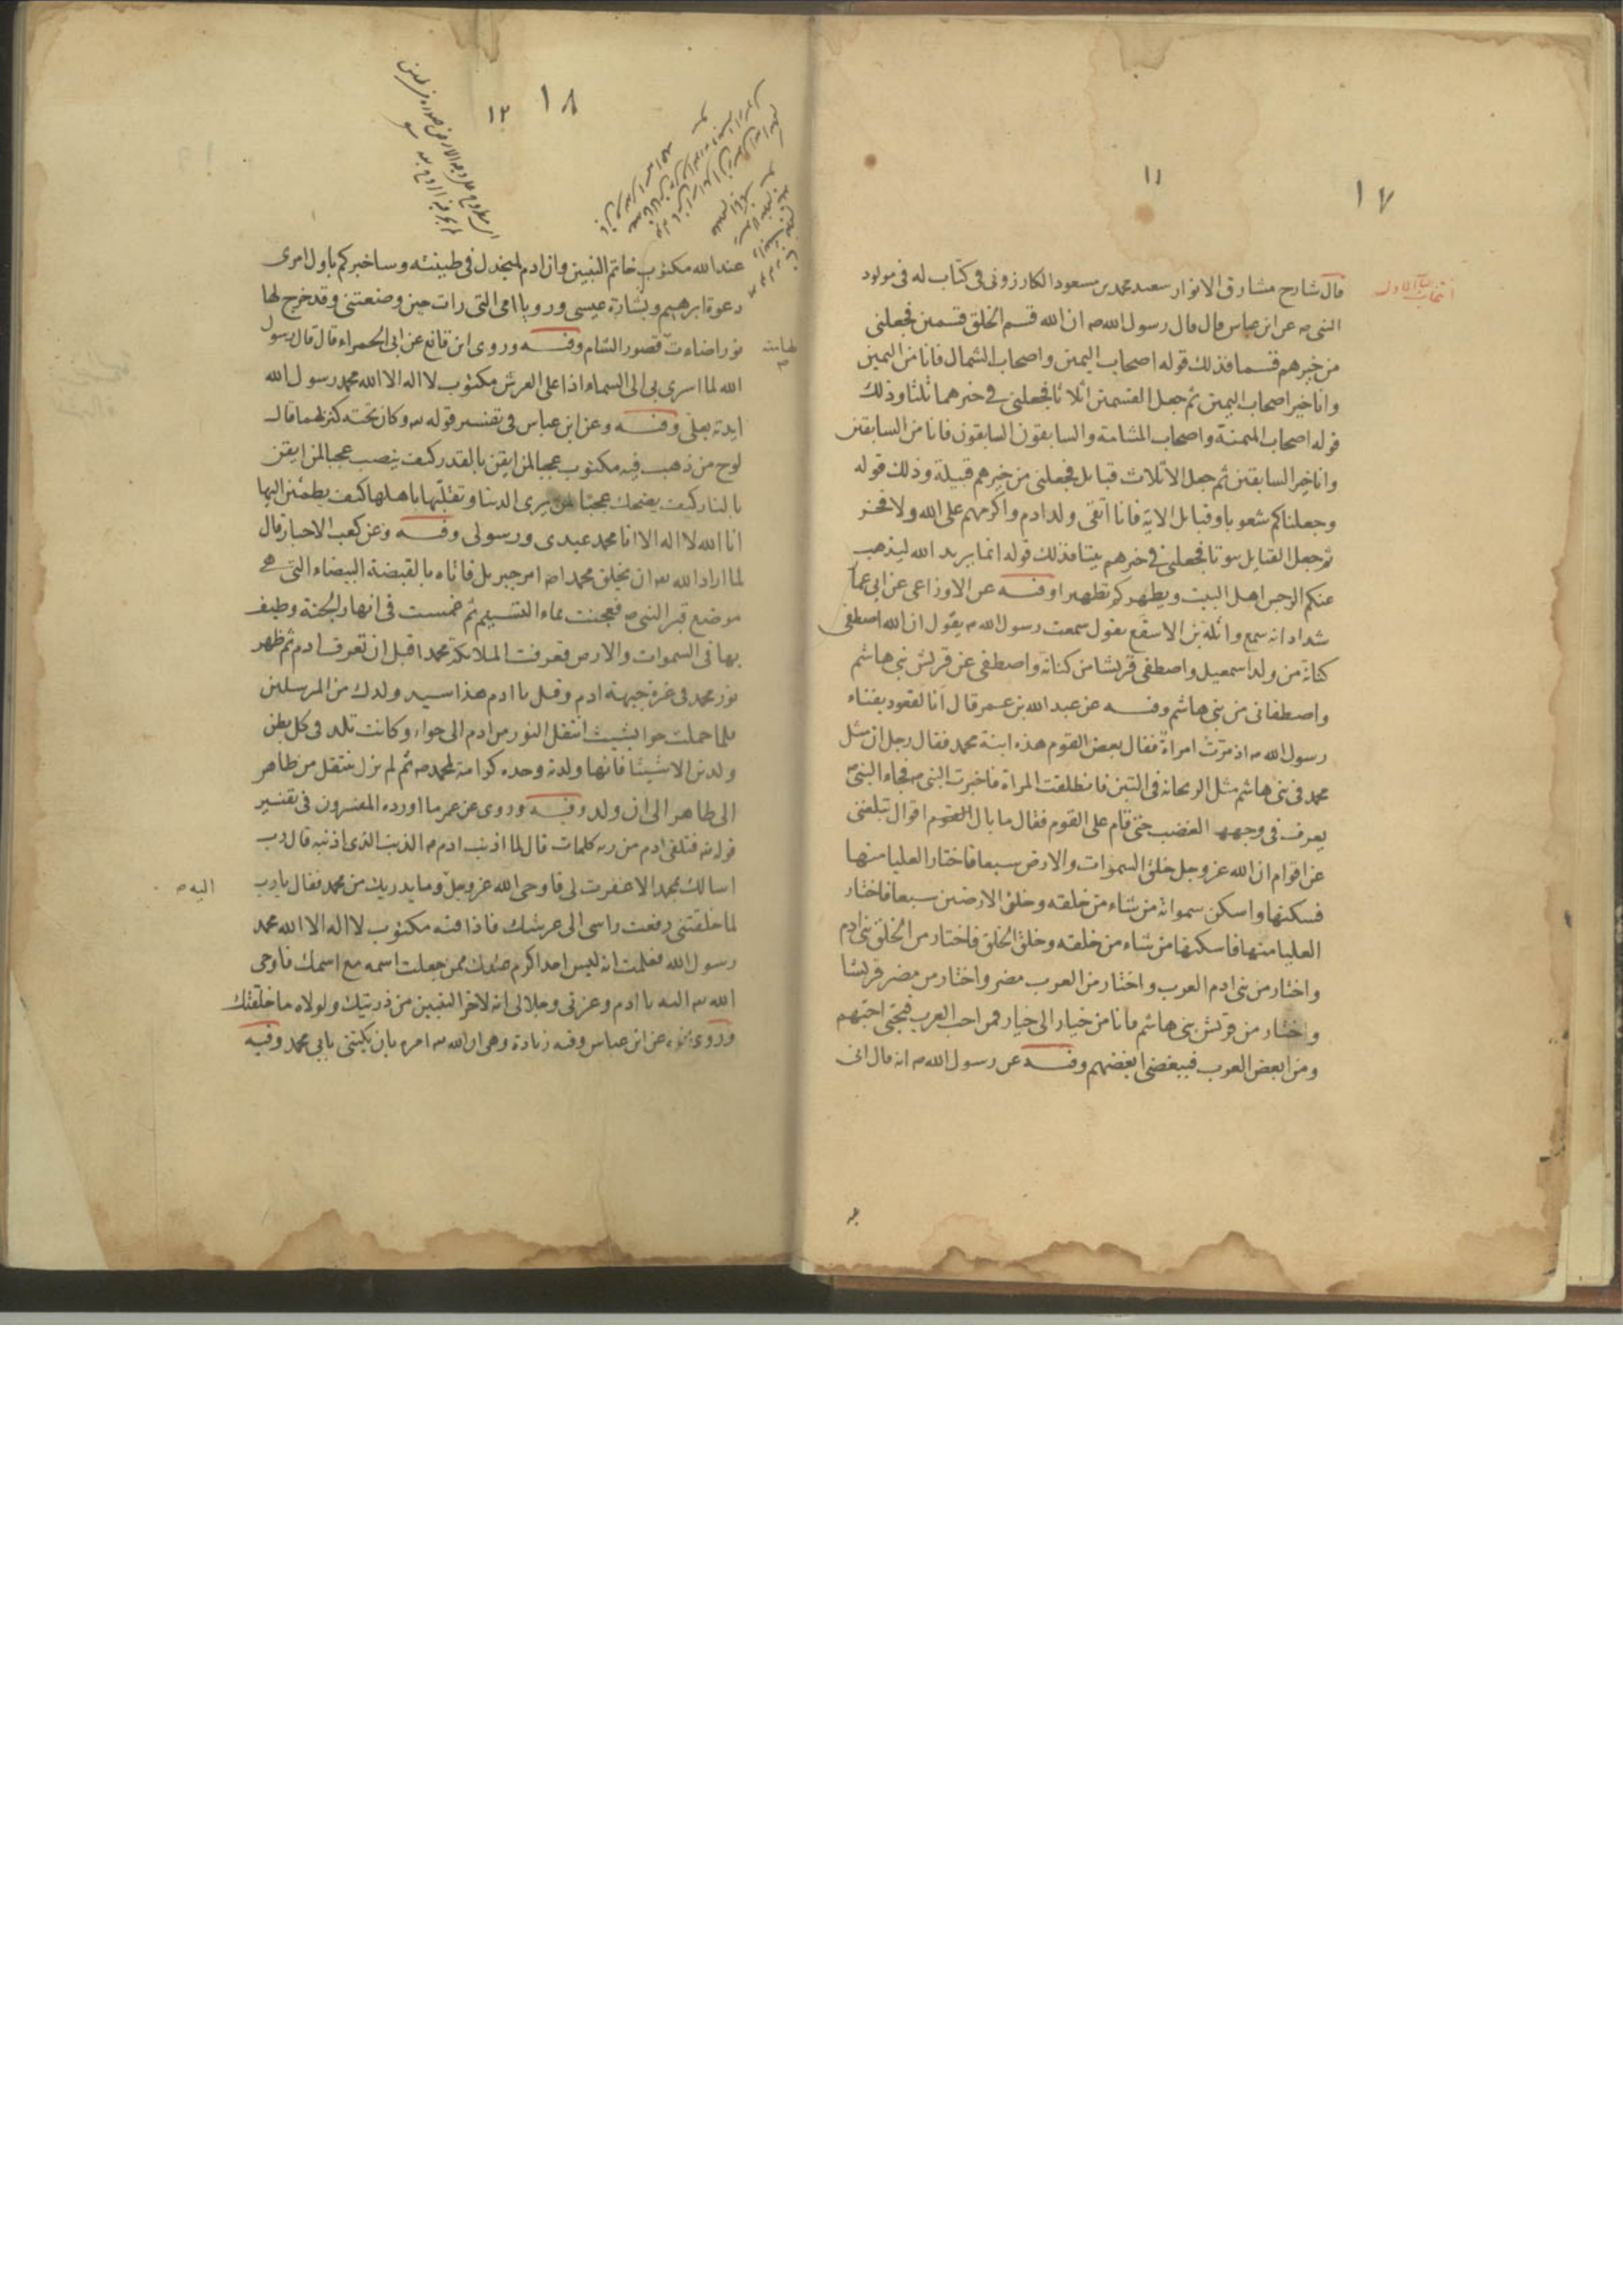 ١٧
١١
قال شارح مشارق الانوار سعيد محمد بن مسعود الكازرونى فى كتاب له فى مولود
النبى ص عن ابن عباس قال قال رسول الله ص ان الله قسم الخلق قسمين فجعلنى
من خيرهم قسما فذلك قوله اصحاب اليمين واصحاب الشمال فانا من اليمين
وانا خير اصحاب اليمين ثم جعل القسمين اثلاثا فجعلنى فى خيرهما ثلثا وذلك
قوله اصحاب الميمنة واصحاب المشامة والسابقون السابقون فانا من السابقين
وانا خير السابقين ثم جعل الاثلاث قبايل فجعلنى من خيرهم قبيلة وذلك قوله
وجعلناكم شعوبا وقبايل الاية فانا اتقى ولد ادم واكرمهم على الله ولا فخر
ثم جعل القبايل بيوتا فجعلنى فى خيرهم بيتا فذلك قوله انما يريد الله ليذهب
عنكم الرجس اهل البيت ويطهركم تطهيرا وفيه عن الاوزاعى عن ابى عمار
شداد انه سمع واثلة بن الاسقع يقول سمعت رسول الله ص يقول ان الله اصطفى
كنانة من ولد اسمعيل واصطفى قريشا من كنانة واصطفى من قريش بنى هاشم
واصطفانى من بنى هاشم وفيه عن عبد الله بن عمر قال انا لقعود بفناء
رسول الله ص اذ مرت امراة فقال بعض القوم هذه ابنة محمد فقال رجل ان مثل
محمد فى بنى هاشم مثل الريحانة فى التين فانطلقت المراة فاخبرت النبى ص فجاء النبى ص
يعرف فى وجهه الغضب حتى قام على القوم فقال ما بال اقوال تبلغنى
عن اقوام ان الله عز وجل خلق السموات والارض سبعا فاختار العليا منها
فسكنها واسكن سمواته من شاء من خلقه وخلق الارضين سبعا فاختار
العليا منها فاسكنها من شاء من خلقه وخلق الخلق فاختار من الخلق بنى ادم
واختار من بنى ادم العرب واختار من العرب مضر واختار من مضر قريشا
واختار من قريش بنى هاشم فانا من خيار الى خيار فمن احب العرب فبحبى احبهم
ومن ابغض العرب فببغضى ابغضهم وفيه عن رسول الله ص انه قال انى
١٨
١٢
عند الله مكتوب خاتم النبيين وان ادم لمنجدل فى طينته وساخبركم باول امرى
دعوة ابرهيم وبشارة عيسى ورويا امى التى رات حين وضعتنى وقد خرج لها
نور اضاءت قصور الشام وفيه وروى ابن قانع عن ابى الحمراء قال قال رسول
الله لما اسرى بى الى السماء اذا على العرش مكتوب لا اله الا الله محمد رسول الله
ايدته بعلى وفيه وعن ابن عباس فى تفسير قوله تعه وكان تحته كنز لهما قال
لوح من ذهب فيه مكتوب عجبا لمن ايقن بالقدر كيف ينصب عجبا لمن ايقن
بالنار كيف يضحك عجبا لمن يرى الدنيا وتقلبها باهلها كيف يطمئن اليها
انا الله لا اله الا انا محمد عبدى ورسولى وفيه وعن كعب الاحبار قال
لما اراد الله تعه ان يخلق محمدا ص امر جبريل فاتاه بالقبضة البيضاء التى هى
موضع قبر النبى ص فعجنت بماء التسنيم ثم غمست فى انهار الجنة وطيف
بها فى السموات والارض فعرفت الملائكة محمدا قبل ان تعرف ادم ثم ظهر
نور محمد فى غرة جبهة ادم وقيل يا ادم هذا سيد ولدك من المرسلين
فلما حملت حوا بشيث انتقل النور من ادم الى حواء وكانت تلد فى كل بطن
ولدين الا شيثا فانها ولدته وحده كرامة لمحمد ص ثم لم يزل ينتقل من طاهر
الى طاهر الى ان ولد وفيه وروى عن عمر ما اورده المفسرون فى تفسير
قوله تعه فتلقى ادم من ربه كلمات قال لما اذنب ادم ص الذنب الذى اذنبه قال رب
اسالك بمحمد الا غفرت لى فاوحى الله عز وجل وما يدريك من محمد فقال يا رب
اليه ص
لما خلقتنى رفعت راسى الى عرشك فاذا فيه مكتوب لا اله الا الله محمد
رسول الله فعلمت انه ليس احد اكرم عندك ممن جعلت اسمه مع اسمك فاوحى
الله تعه اليه يا ادم وعزتى وجلالى انه لاخر النبيين من ذريتك ولولاه ما خلقتك
وروى نحوه عن ابن عباس وفيه زيادة وهى ان الله تعه امره بان يكتنى بابى محمد وفيه